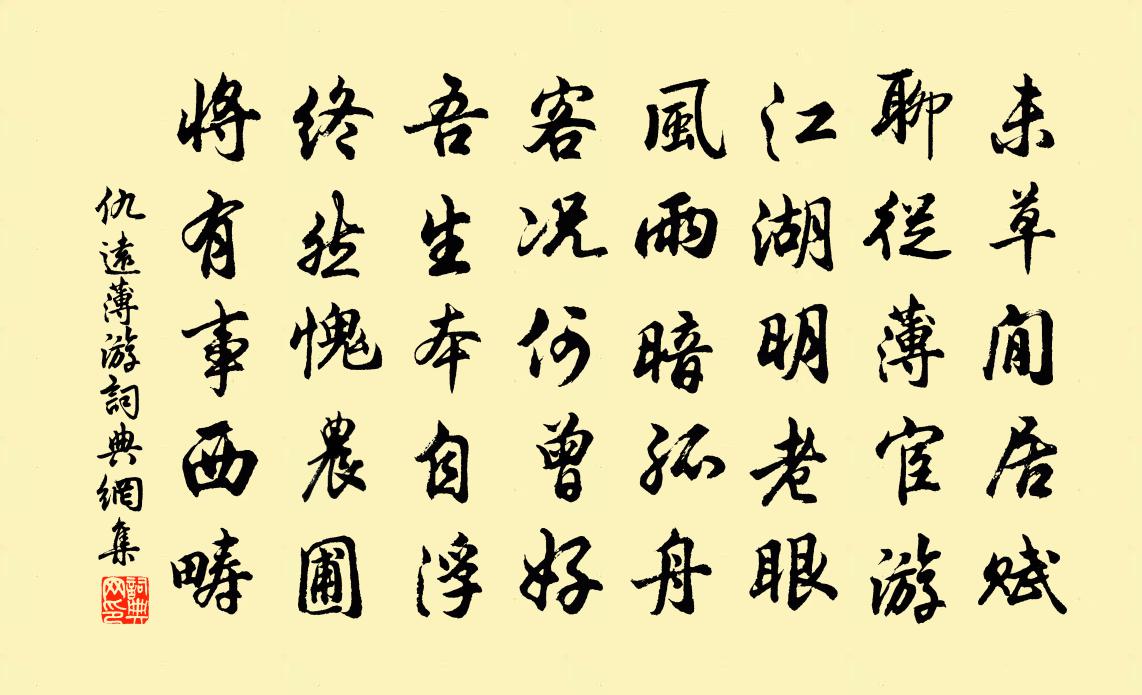 未草閒居賦
聊從薄宦游
江湖明老眼
風雨暗孤舟
客況何曾好
吾生本自浮
終然愧農圃
將有事西疇
仇遠薄游詞典網集
詞典網印